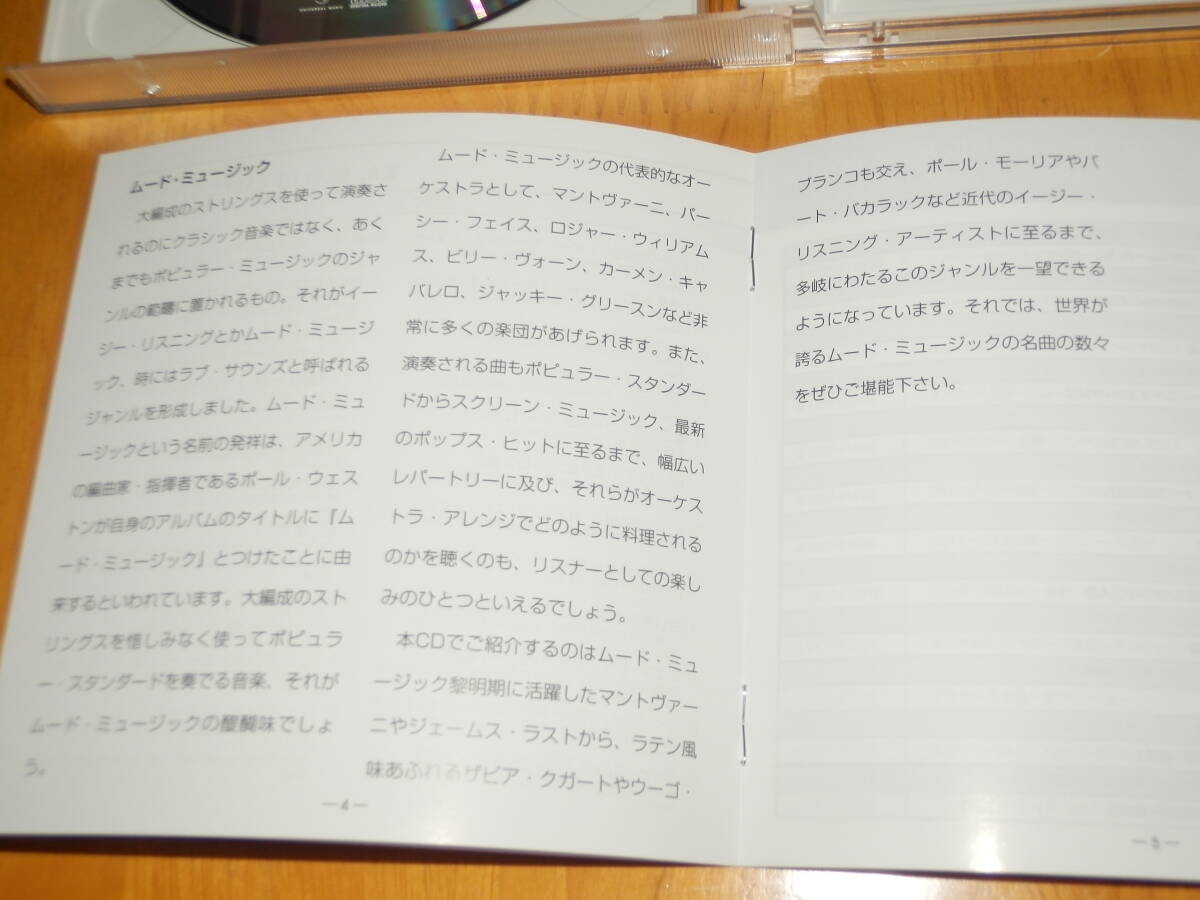 UNIVERSAL MUSIC
ムード・ミュージック
大編成のストリングスを使って演奏さ
れるのにクラシック音楽ではなく、あく
までもポピュラー・ミュージックのジャ
ンルの範疇に置かれるもの。それがイー
ジー・リスニングとかムード・ミュージ
ック、時にはラブ・サウンズと呼ばれる
ジャンルを形成しました。ムード・ミュ
ージックという名前の発祥は、アメリカ
の編曲家・指揮者であるポール・ウェス
トンが自身のアルバムのタイトルに『ム
ード・ミュージック』とつけたことに由
来するといわれています。大編成のスト
リングスを惜しみなく使ってポピュラ
ー・スタンダードを奏でる音楽、それが
ムード・ミュージックの醍醐味でしょ
う。
ムード・ミュージックの代表的なオー
ケストラとして、マントヴァーニ、パー
シー・フェイス、ロジャー・ウィリアム
ス、ビリー・ヴォーン、カーメン・キャ
バレロ、ジャッキー・グリースンなど非
常に多くの楽団があげられます。また、
演奏される曲もポピュラー・スタンダー
ドからスクリーン・ミュージック、最新
のポップス・ヒットに至るまで、幅広い
レパートリーに及び、それらがオーケス
トラ・アレンジでどのように料理される
のかを聴くのも、リスナーとしての楽し
みのひとつといえるでしょう。
本CDでご紹介するのはムード・ミュ
ージック黎明期に活躍したマントヴァー
ニやジェームス・ラストから、ラテン風
味あふれるザビア・クガートやウーゴ・
—4—
ブランコも交え、ポール・モーリアやバ
ート・バカラックなど近代のイージー・
リスニング・アーティストに至るまで、
多岐にわたるこのジャンルを一望できる
ようになっています。それでは、世界が
誇るムード・ミュージックの名曲の数々
をぜひご堪能下さい。
—5—